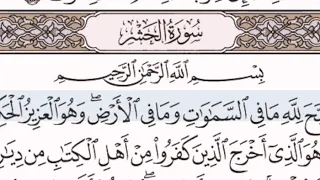 سُورَةُ الْحَشْرِ
بِسْمِ اللَّهِ الرَّحْمَٰنِ الرَّحِيمِ
لِلَّهِ مَا فِي السَّمَاوَاتِ وَمَا فِي الْأَرْضِ ۖ وَهُوَ الْعَزِيزُ
هُوَ الَّذِي أَخْرَجَ الَّذِينَ كَفَرُوا مِنْ أَهْلِ الْكِتَابِ مِن